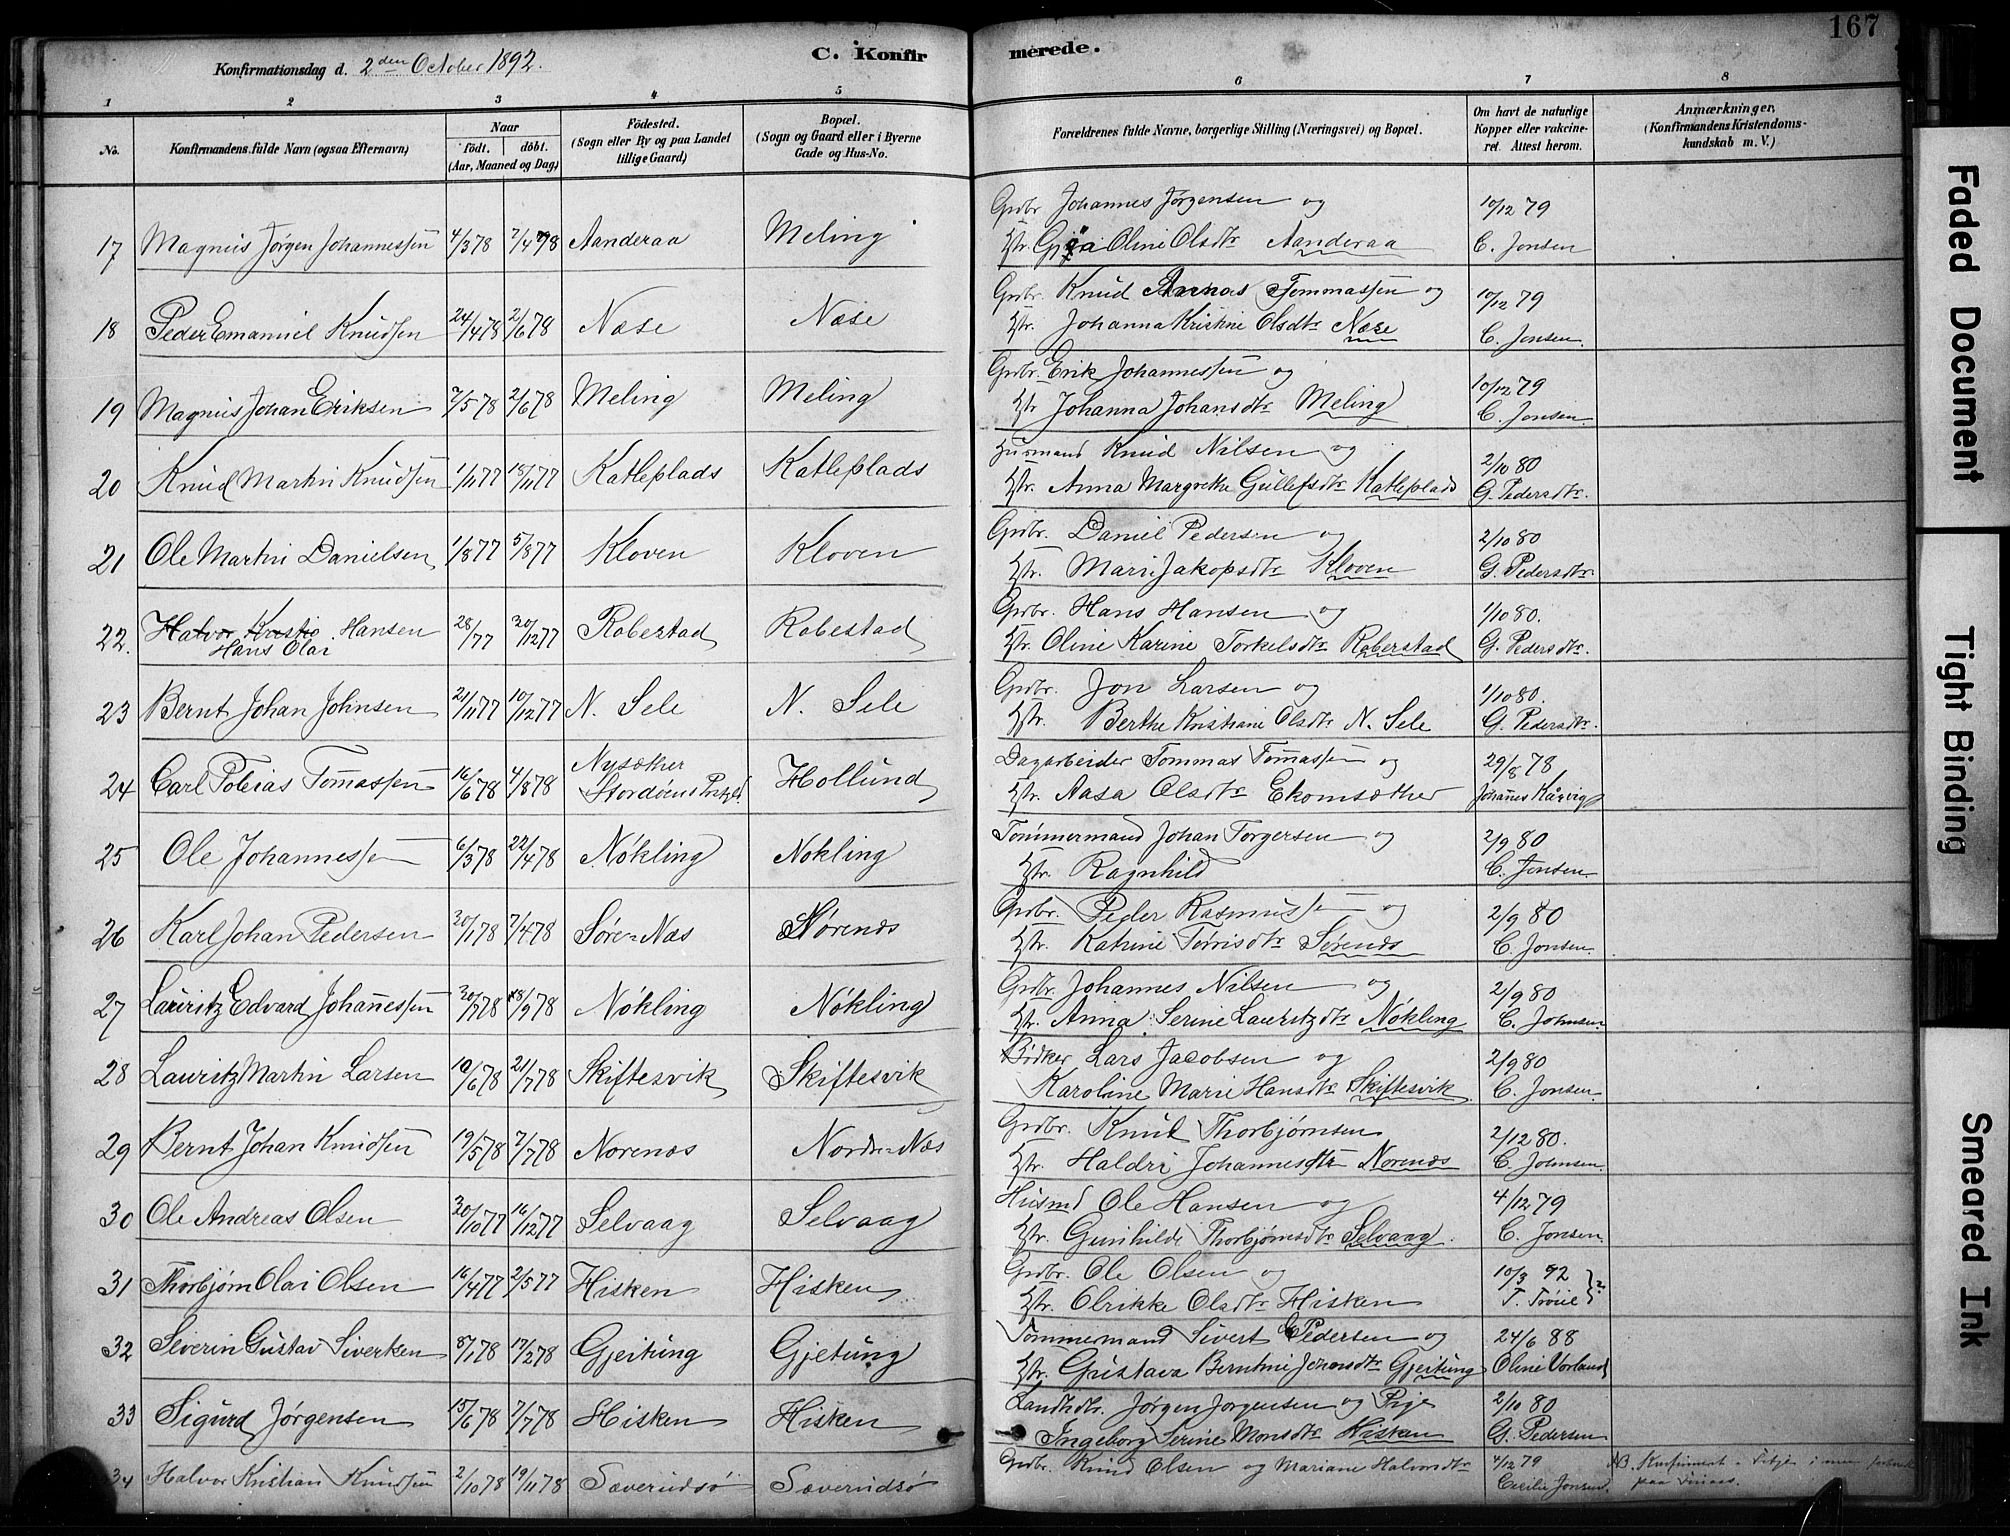 167
Konfirmationsdag d. 2den October 1892.
C. Konfir
merede.
1 2 3 4 5 6 7 8
No.
Konfirmandens fulde Navn (ogsaa Efternavn)
Naar
født. døbt.
(Aar, Maaned og Dag)
Fødested.
(Sogn eller By og paa Landet
tillige Gaard)
Bopæl.
(Sogn og Gaard eller i Byerne
Gade og Hus-No.
Forældrenes fulde Navne, borgerlige Stilling (Næringsvei) og Bopæl.
Om havt de naturlige
Kopper eller vakcine-
ret. Attest herom.
Anmærkninger,
(Konfirmandens Kristendoms-
kundskab m. V.)
Grdbr. Johannes Jørgensen og 10/12 79
17 Magnus Jørgen Johannessen 4/3 78 7/4 78 Aanderaa Meling Oline Olsdtr Aanderaa C. Jonsen
Grdbr. Knud Tommassen og 10/12 79
18 Peder Emanuel Knudsen 24/4 78 2/6 78 Næse Næse Johanna Kristine Olsdtr Næse C. Jonsen.
Grdbr. Erik Johannessen og 10/12 79
19 Magnus Johan Eriksen 7/5 78 2/6 78 Meling Meling Johanna Johansdtr Meling C. Jonsen.
Husmand Knud Nilsen og 2/10 80
20 Knud Martin Knudsen 1/11 77 18/11 77 Katleplads Katleplads Anna Margrethe Gullefsdtr Katleplads G. Pedersdtr.
Grdbr. Daniel Pedersen og 2/10 80
21 Ole Martin Danielsen 1/8 77 5/8 77 Kloven Kloven Mari Jakopsdtr Kloven G. Pedersdtr.
Grdbr. Hans Hansen og 1/10 80.
22. Halvor Hansen 28/77 30/12 77 Roberstad Robestad Oline Karine Torkelsdtr Roberstad G. Pedersdtr.
Hans Olai
Grdbr. Jon Larsen og 1/10 80.
23 Bernt Johan Johnsen 21/11 77 10/12 77 N. Sele N. Sele Berthe Kristiane Olsdtr N. Sele G. Pedersdtr.
Nysæther Dagarbeider Tommas Tomassen og 29/8 78
24 Carl Tobias Tomassen 16/6 78 4/8 78 Stordøens Hollund Aasa Olsdtr Ekornsæther Johannes Kårvig
Tømmermand Johan Torgersen og 2/9 80
25 Ole Johannessen 6/3 78 22/4 78 Nøkling Nøkling Ragnhild C. Jonsen.
Grdbr. Peder Rasmussen og 2/9 80
26 Karl Johan Pedersen 30/1 78 7/4 78 Søre-Næs Nørenæs Katrine Tørrisdtr Sørenæs C. Jonsen.
Grdbr. Johannes Nilsen og 2/9 80
27 Lauritz Edvard Johannessen 30/7 78 8/9 78 Nøkling Nøkling Anna Serine Lauritzdtr Nøkling C. Johnsen
Bødker Lars Jacobsen og 2/9 80
28 Lauritz Martin Larsen 10/6 78 21/7 78 Skiftesvik Skiftesvik Karoline Marie Hansdtr Skiftesvik C. Jonsen.
Grdbr. Knud Thorbjørnsen 2/12 80.
29 Bernt Johan Knudsen 19/5 78 7/7 78 Norenæs Nordre-Næs Haldri Johannesdtr Norenæs C. Johnsen.
Husmd Ole Hansen og 4/12 79
30 Ole Andreas Olsen 20/10 77 16/12 77 Selvaag Selvaag Gunhilde Thorbjørnsdtr Selvaag. C. Jonsen.
Grdbr. Ole Olsen og 10/3 92
31 Thorbjørn Olai Olsen 16/4 77 2/5 77 Hisken Hisken Olrikke Olsdtr Hisken T. Troiel
Tømmermand Sivert Pedersen og 24/6 88
32 Severin Gustav Sivertsen 8/1 78 17/2 78 Gjeitung Gjetung Gustava Berntine Jonsdtr Gjeitung Oline Vorland
Landhdlr. Jørgen Jørgensen og Pige 2/10 80
33 Sigurd Jørgensen 15/6 78 7/7 78 Hisken Hisken Ingeborg Serine Monsdtr Hisken G. Pedersen
Grdbr. Knud Olsen og Mariane Halvorsdtr 4/12 79 NB. Konfirmeret i Fitje
34 Halvor Kristian Knudsen 2/10 78 19/11 78 Sæverudsø Sæverudsø Cecilie Jonsen. paa
Faded Document
Tight Binding
Smeared Ink